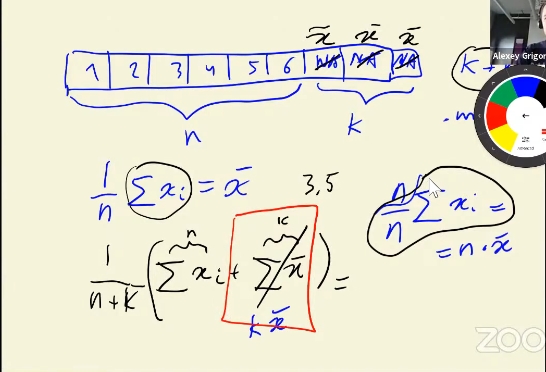 Alexey Grigor
x̄ x̄ x̄
1 2 3 4 5 6 NA NA NA
k +
n k
· m
1/n ∑ xᵢ = x̄
3,5
n/n ∑ xᵢ =
= n · x̄
n k
1/(n+k) ( ∑ xᵢ + ∑ x̄ ) =
k x̄
ZOO